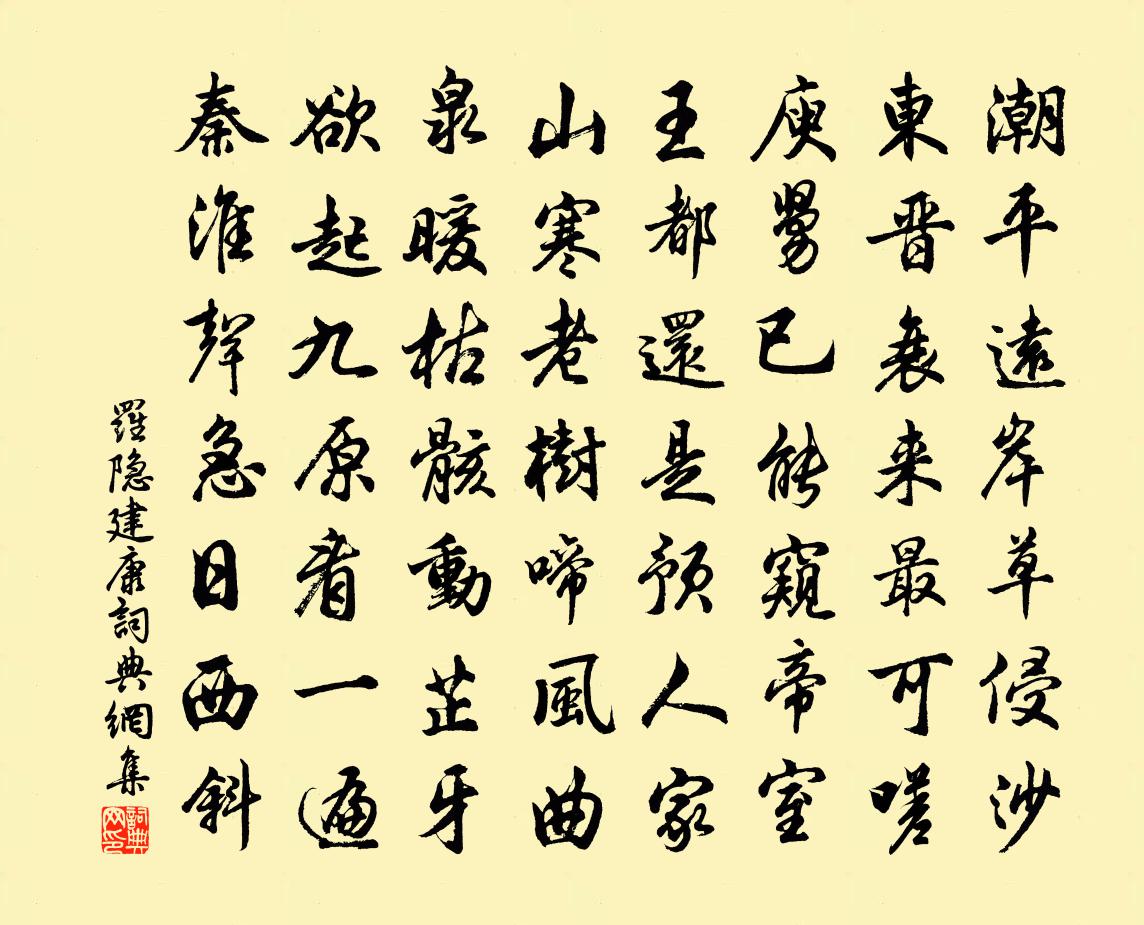 潮平遠岸草侵沙
東晋衰来最可嗟
庾舅已能窺帝室
王都還是預人家
山寒老樹啼風曲
泉暖枯骸動芷牙
欲起九原看一遍
秦淮聲急日西斜
羅隐建康詞典網集
詞典网印